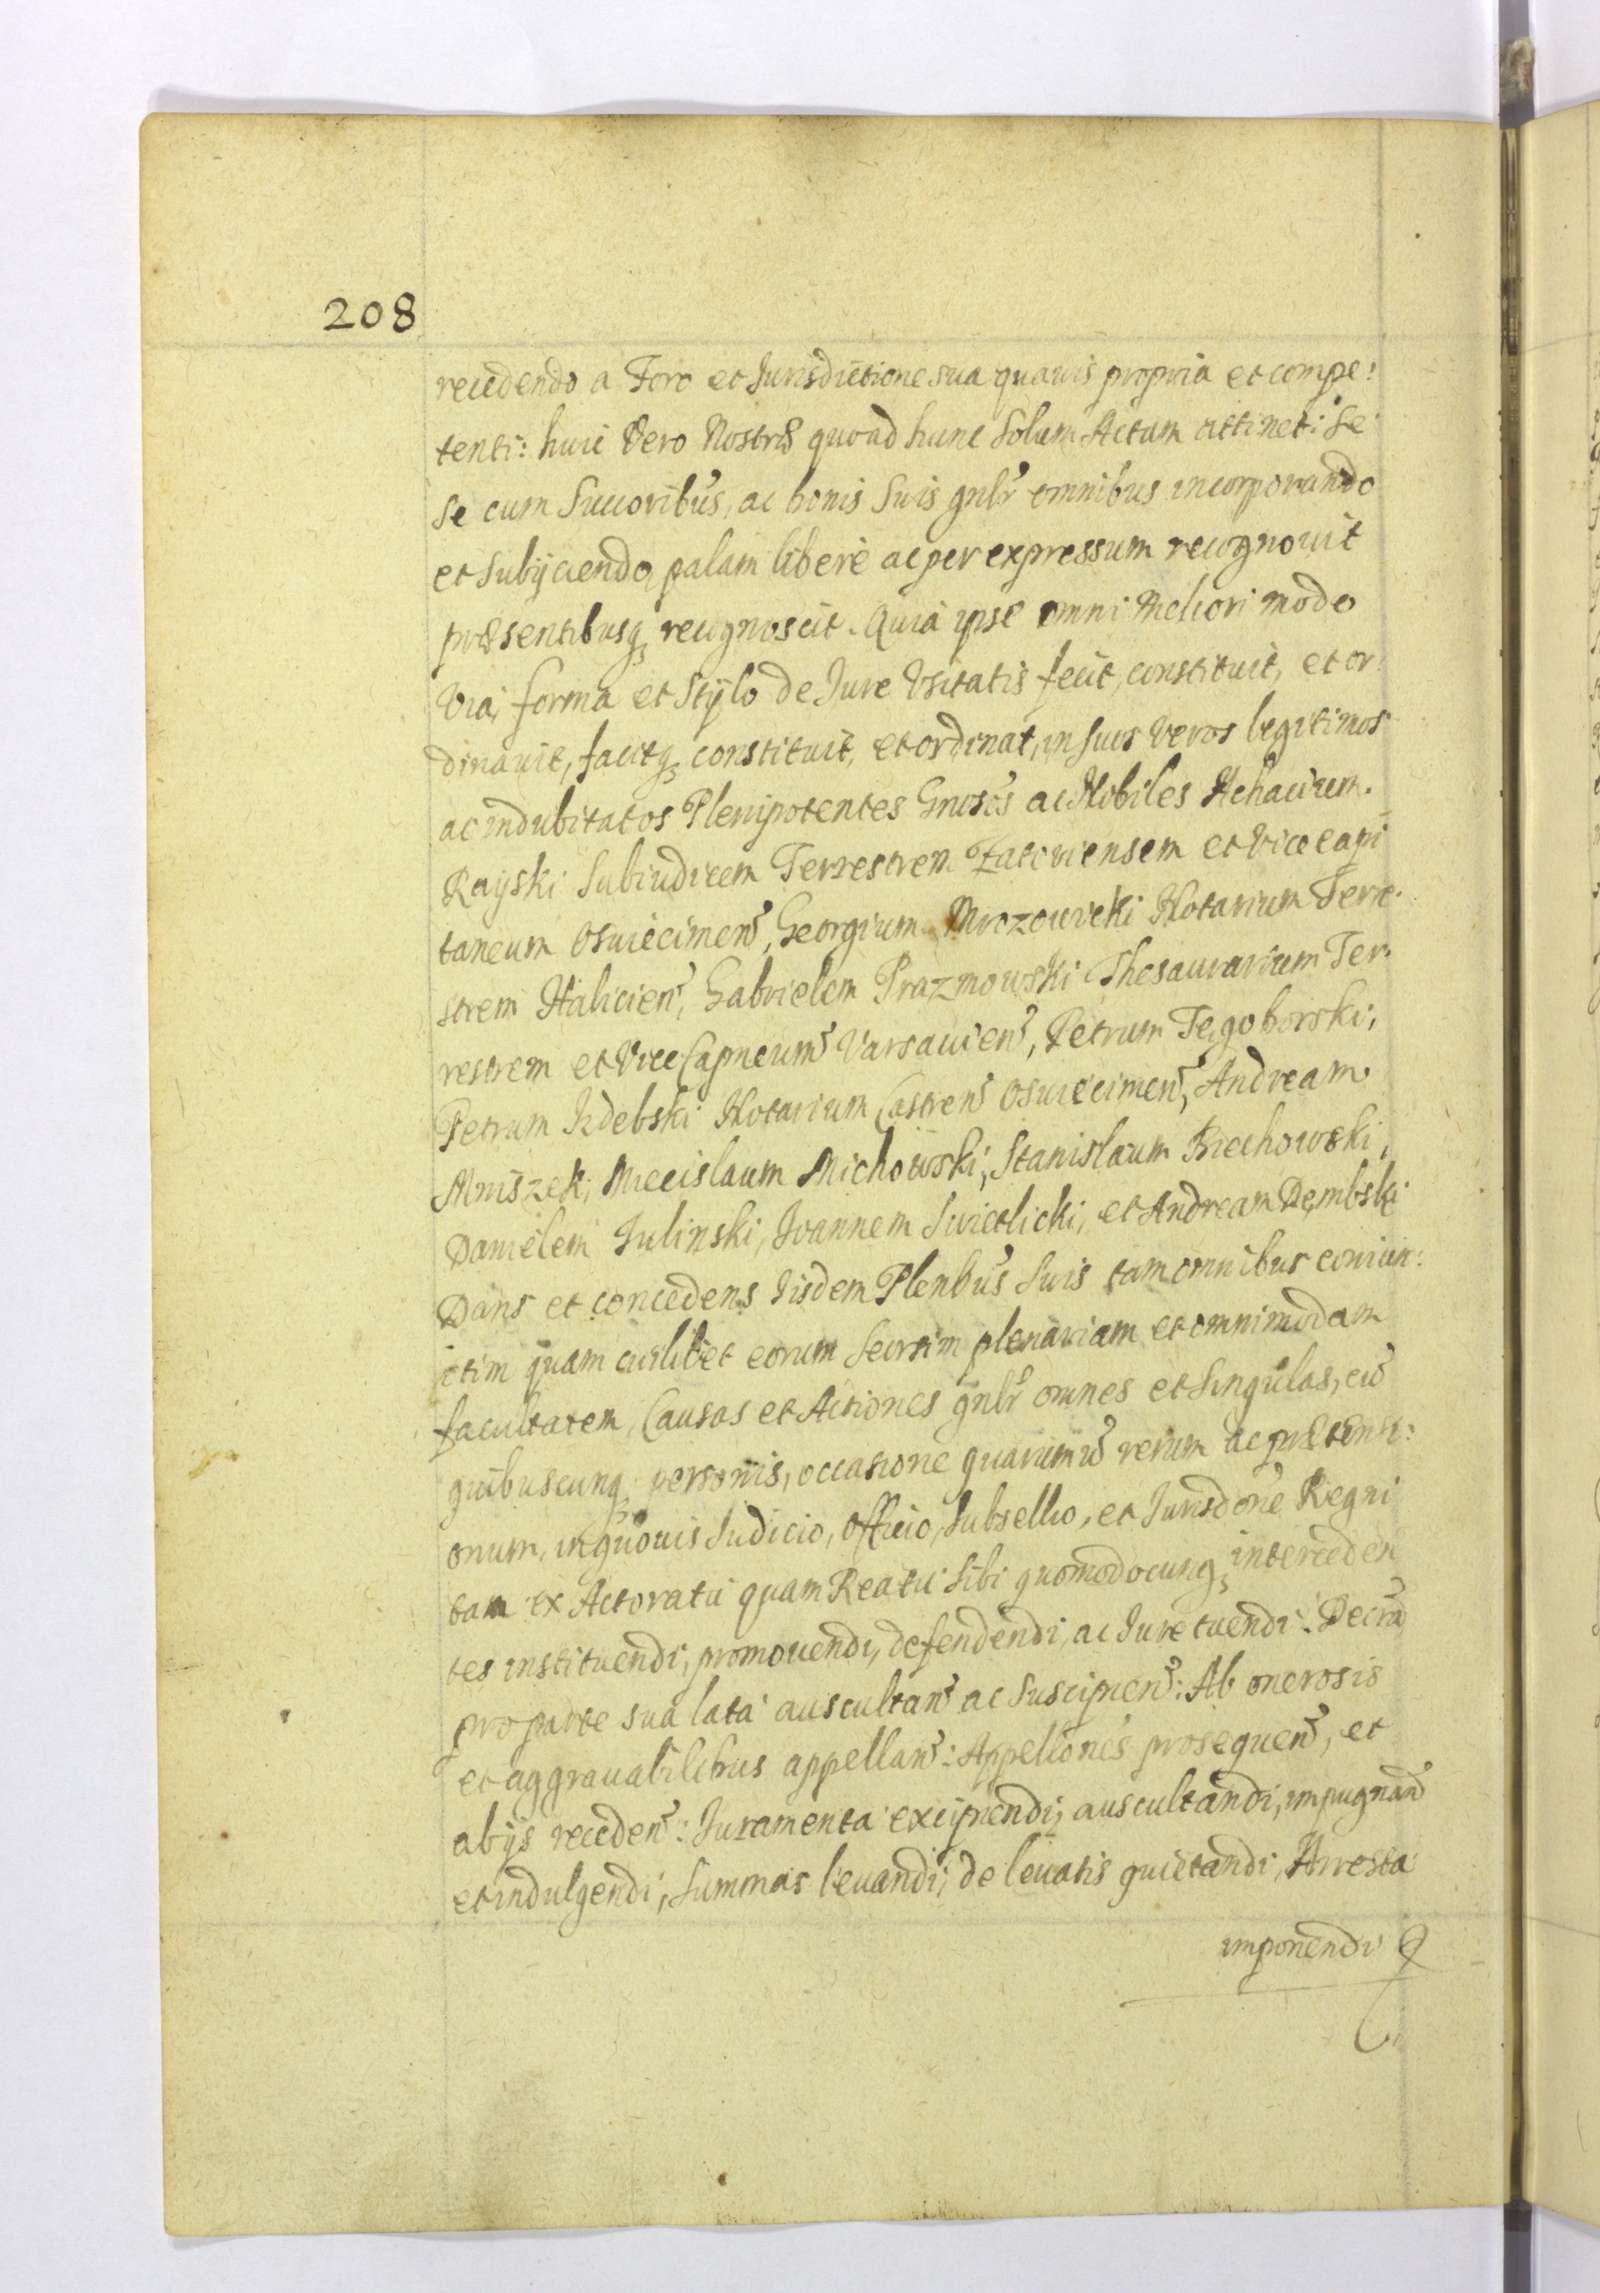 208
recedendo a Foro et Jurisdictione sua quavis propria et compe:
tenti: huic Vero Nostræ quoad hunc Solum Actum attinet: Se
se cum Succoribus, ac bonis Suis gnlr omnibus incorporando
et Subijciendo, palam libere ac per expressum recognouit
præsentibusq recognoscit. Quia ipse omni Meliori modo
Via, forma et Stylo de Iure Vsitatis fecit, constituit, et or:
dinauit, facitq constituit, et ordinat, in Suos Veros legitimos
ac indubitatos Plenipotentes Gnosos ac Nobiles Achacium
Rayski Subiudicem Terrestrem Zatoriensem et Vicecapi
taneum Osuiecimen, Georgium Mrozowicki Notarium Terre:
strem Halicien, Gabrielem Prazmowski Thesaurarium Ter:
restrem et Vice Capneum Varsauien, Petrum Tęgoborski,
Petrum Izdebski Notarium Castren Osuiecimen, Andream
Mniszek, Miecislaum Michowski, Stanislaum Biechowski,
Danielem Iulinski, Ioannem Swietlicki, et Andream Dembski
Dans et concedens Iisdem Plenbus Suis tam omnibus coniun:
ctim quam cuilibet eorum Seorsim plenariam et omnimodam
facultatem, Causas et Actiones gnlr omnes et Singulas, cu
quibuscunq personis, occasione quarumu rerum ac prætensi:
onum, in quouis Iudicio, Officio, Subsellio, et Jurisdone Regni
tam ex Actoratu quam Reatu Sibi quomodocunq interceden
tes instituendi, promouendi, defendendi, ac Iure tuendi: Decra
pro parte sua lata auscultan ac Suscipien: Ab onerosis
et aggrauabilibus appellan: Appellones prosequen, et
ab ijs receden: Iuramenta excipiendi, auscultandi, impugnan
et indulgendi, Summas leuandi, de leuatis quietandi, Arresta
imponendi